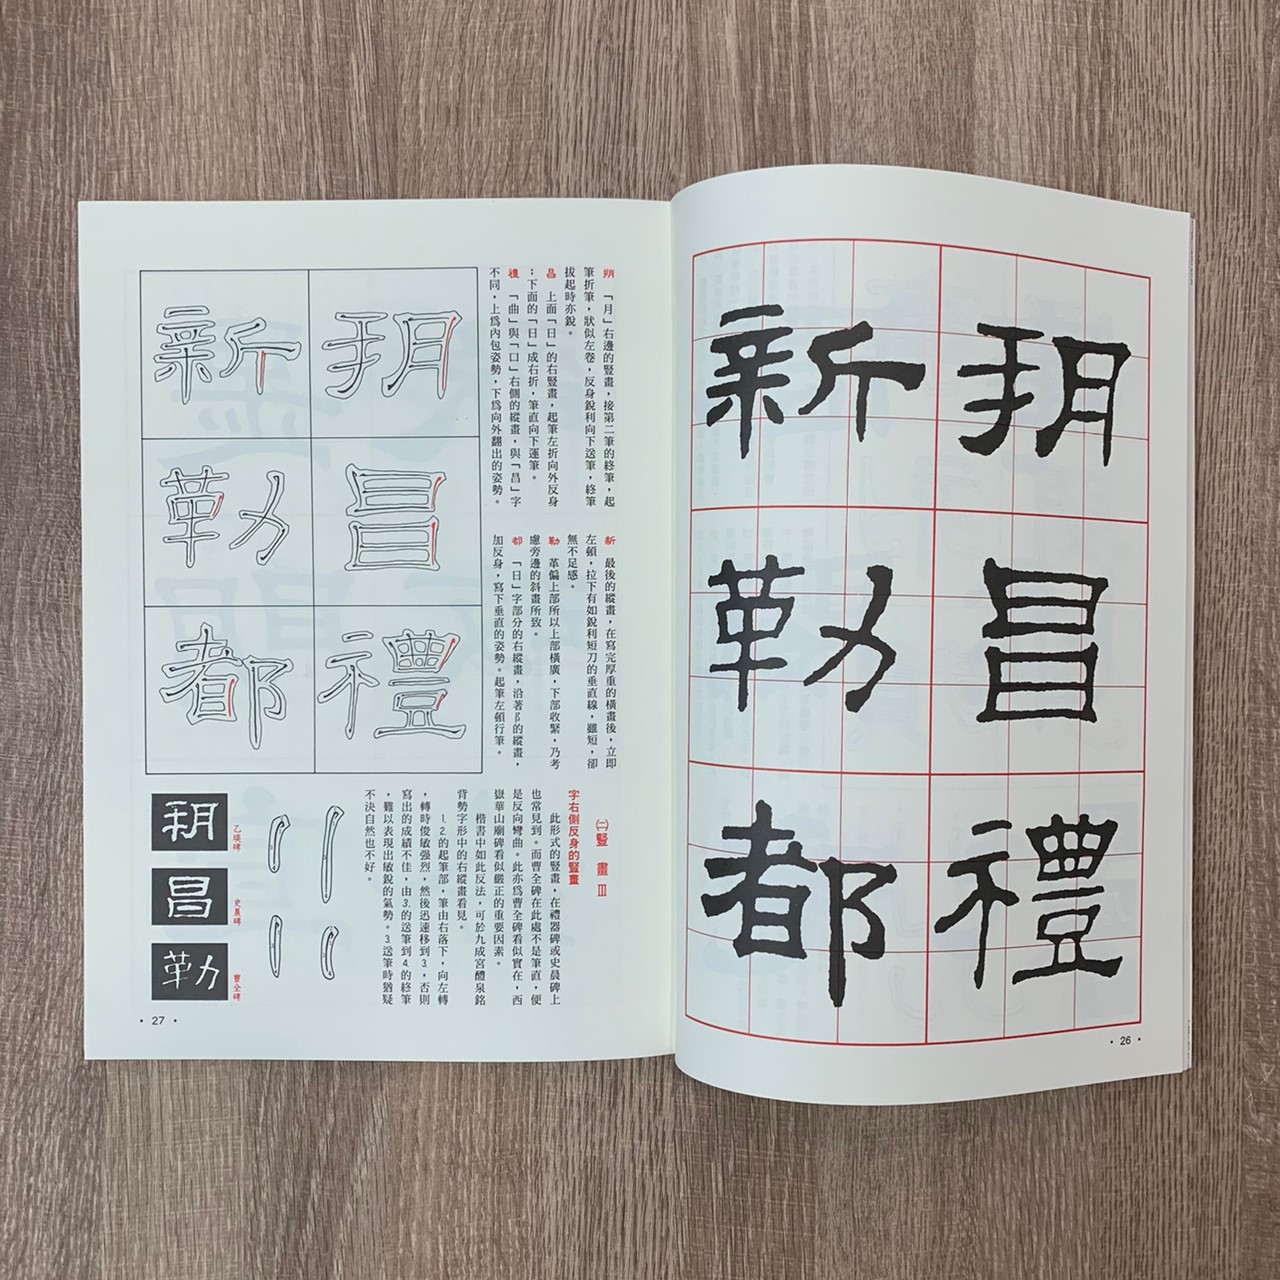 朔
昌
禮
新
勒
都
• 26 •
朔 「月」右邊的豎畫，接第二筆的終筆，起
筆折筆，狀似左卷，反身銳利向下送筆，終筆
拔起時亦銳。
昌 上面「日」的右豎畫，起筆左折向外反身
；下面的「日」成右折，筆直向下運筆。
禮 「曲」與「口」右側的縱畫，與「昌」字
不同，上爲內包姿勢，下爲向外翻出的姿勢。
新 最後的縱畫，在寫完厚重的橫畫後，立即
左頓，拉下有如銳利短刀的垂直線，雖短，卻
無不足感。
勒 革偏上部所以上部橫廣，下部收緊，乃考
慮旁邊的斜畫所致。
都 「日」字部分的右縱畫，沿著阝的縱畫，
加反身，寫下垂直的姿勢。起筆左頓行筆。
㈡豎 畫 Ⅲ
字右側反身的豎畫
此形式的豎畫，在禮器碑或史晨碑上
也常見到。而曹全碑在此處不是筆直，便
是反向彎曲。此亦爲曹全碑看似實在，西
嶽華山廟碑看似嚴正的重要因素。
楷書中如此反法，可於九成宮醴泉銘
背勢字形中的右縱畫看見。
1. 2.的起筆部，筆由右落下，向左轉
，轉時俊敏强烈，然後迅速移到3.，否則
寫出的成績不佳，由3.的送筆到4.的終筆
，難以表現出敏銳的氣勢。3.送筆時猶疑
不決自然也不好。
朔
昌
禮
新
勒
都
朔
乙瑛碑
昌
史晨碑
勒
曹全碑
• 27 •